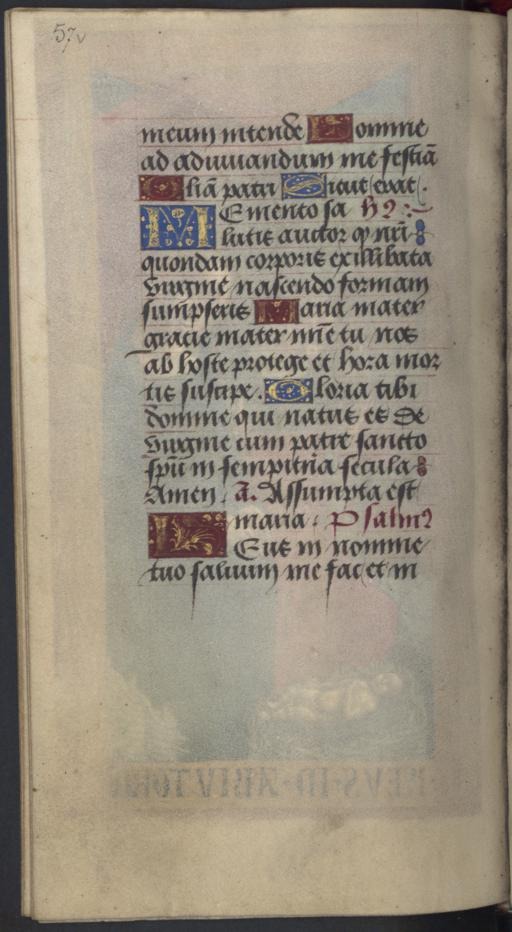 57v
meum intende Domine
ad adiuuandum me festiā
Gliā patri Sicut erat.
Memento sa hȝ
lutis auctor ꝙ nr̄i
quondam corporis ex illibata
virgine nascendo formam
sumpseris Maria mater
gracie mater mīe tu nos
ab hoste protege et hora mor
tis suscipe. Gloria tibi
domine qui natus es de
virgine cum patre sancto
spū in sempitn̄a secula
Amen. a. Assumpta est
maria. Psalmꝰ
Deus in nomine
tuo saluum me fac et in
DEVS·IN·ADIVTORI